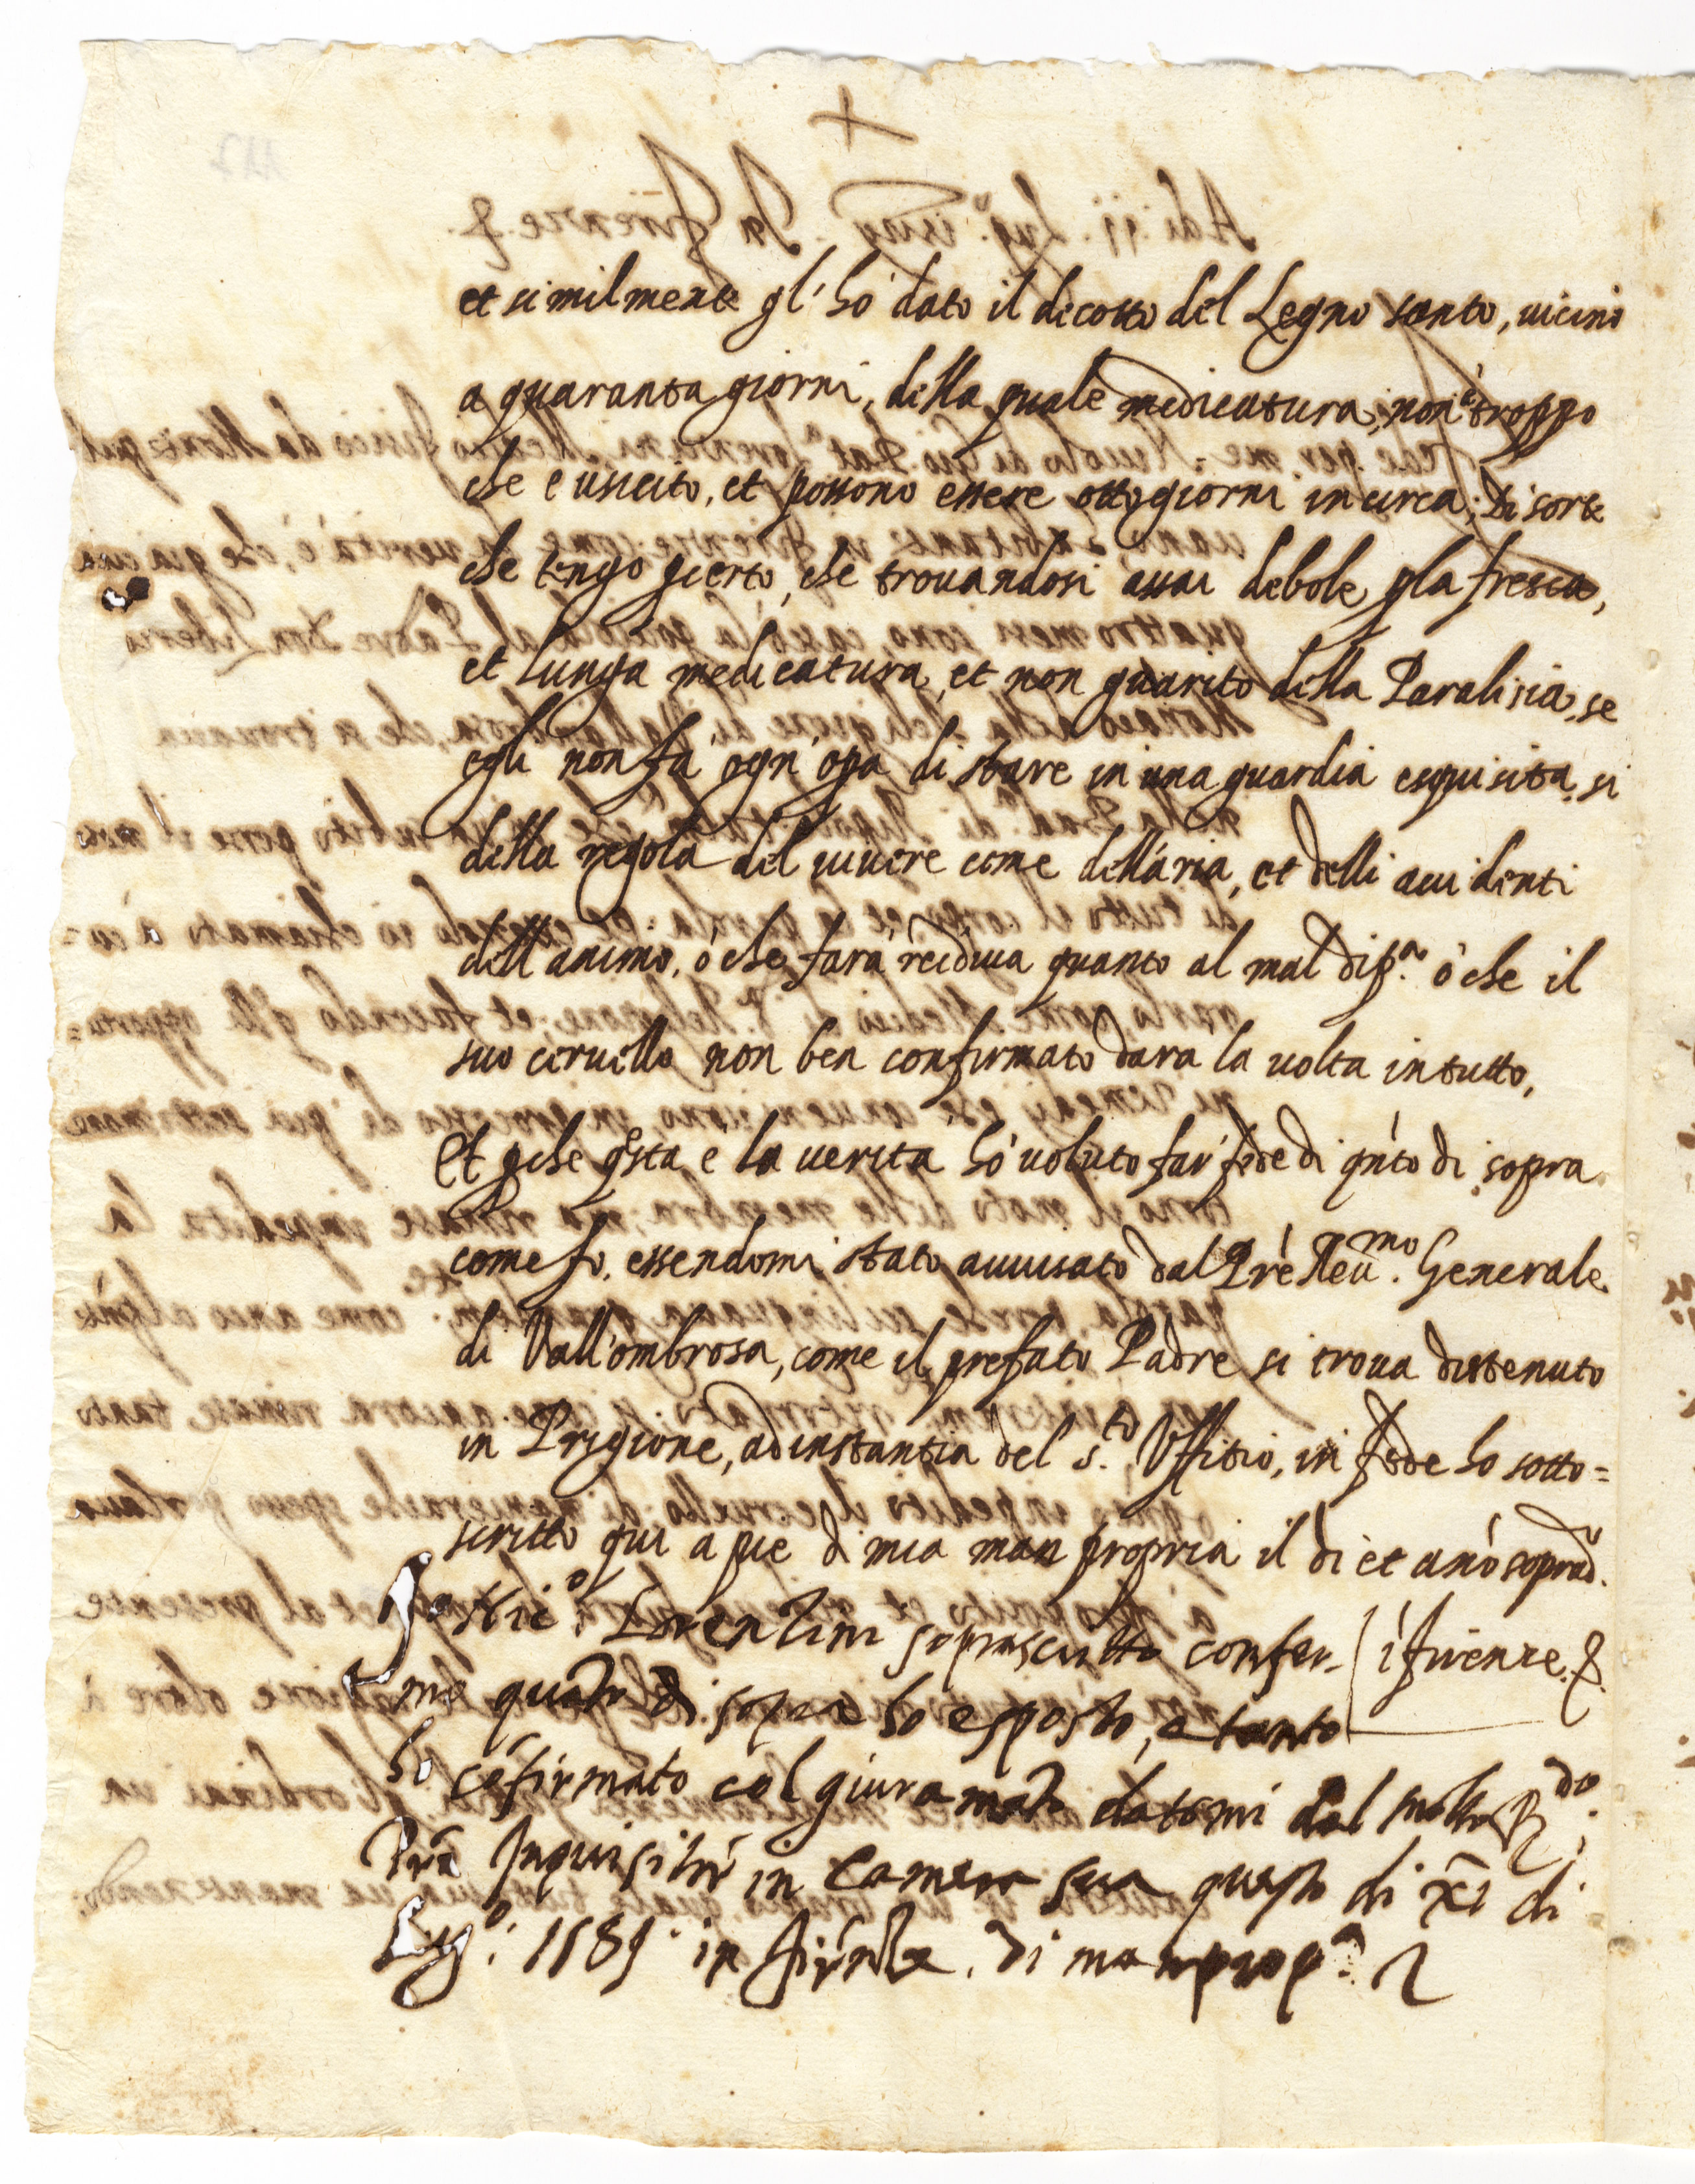 et similmente gl'hò dato il decotto del Legno santo, uicino
a quaranta giorni, della quale medicatura, non è troppo
che è uscito, et possono essere otto giorni in circa; Di sorte
che tengo certo, che trouandosi assai debole pla fresca,
et lunga medicatura, et non guarito della Paralisia, se
egli non fà ogn'opa di stare in una guardia esquisita, si
della regola del uiuere come dell'aria, et delli accidenti
dell'animo, ò che farà recidiua quanto al mal ò che il
suo ceruello non ben confirmato darà la uolta in tutto,
Et pche qsta è la uerità hò uoluto far fede di qnto di sopra
come fo, essendomi stato auuisato dal Pre Reu.mo Generale
di Vall'ombrosa, come il prefato Padre si troua distenuto
in Prigione, ad instantia del S.to Uffitio, in fede ho sotto=
scritto qui a pie di mia man propria il di et anno soprad.o
Lorenzini soprascritto confer- i firenze. &.
mo quato di sopra ho esposto, e tanto
ho cofirmato col giuramto datomi dal molto R.do
Pre Inquisitor in Camera sua questo di xi di
Lug.o: 1589. in firnze. di man prop.a